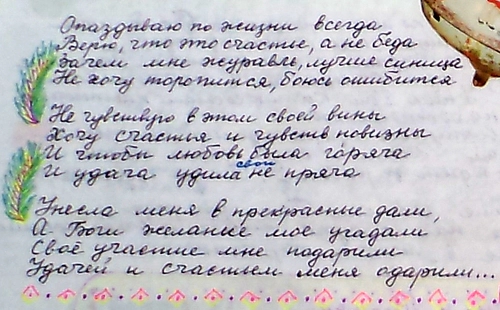 Опаздываю по жизни всегда
Верю, что это счастье, а не беда
Зачем мне журавль, лучше синица
Не хочу торопится, боюсь ошибится
Не чувствую в этом своей вины
Хочу счастья и чувств новизны
И чтобы любовь была горяча
И удача удила свои не пряча
Унесла меня в прекрасные дали,
А Боги желание мое угадали
Своё участие мне подарили
Удачей и счастьем меня одарили...